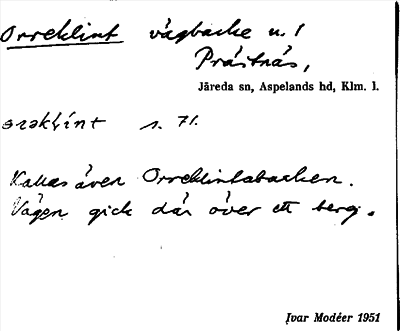 Orreklint vägbacke u. /
Prästnäs,
Järeda sn, Aspelands hd, Klm. l.
s. 71.
Kallas även Orreklintabacken.
Vägen gick där över ett berg.
Ivar Modéer 1951